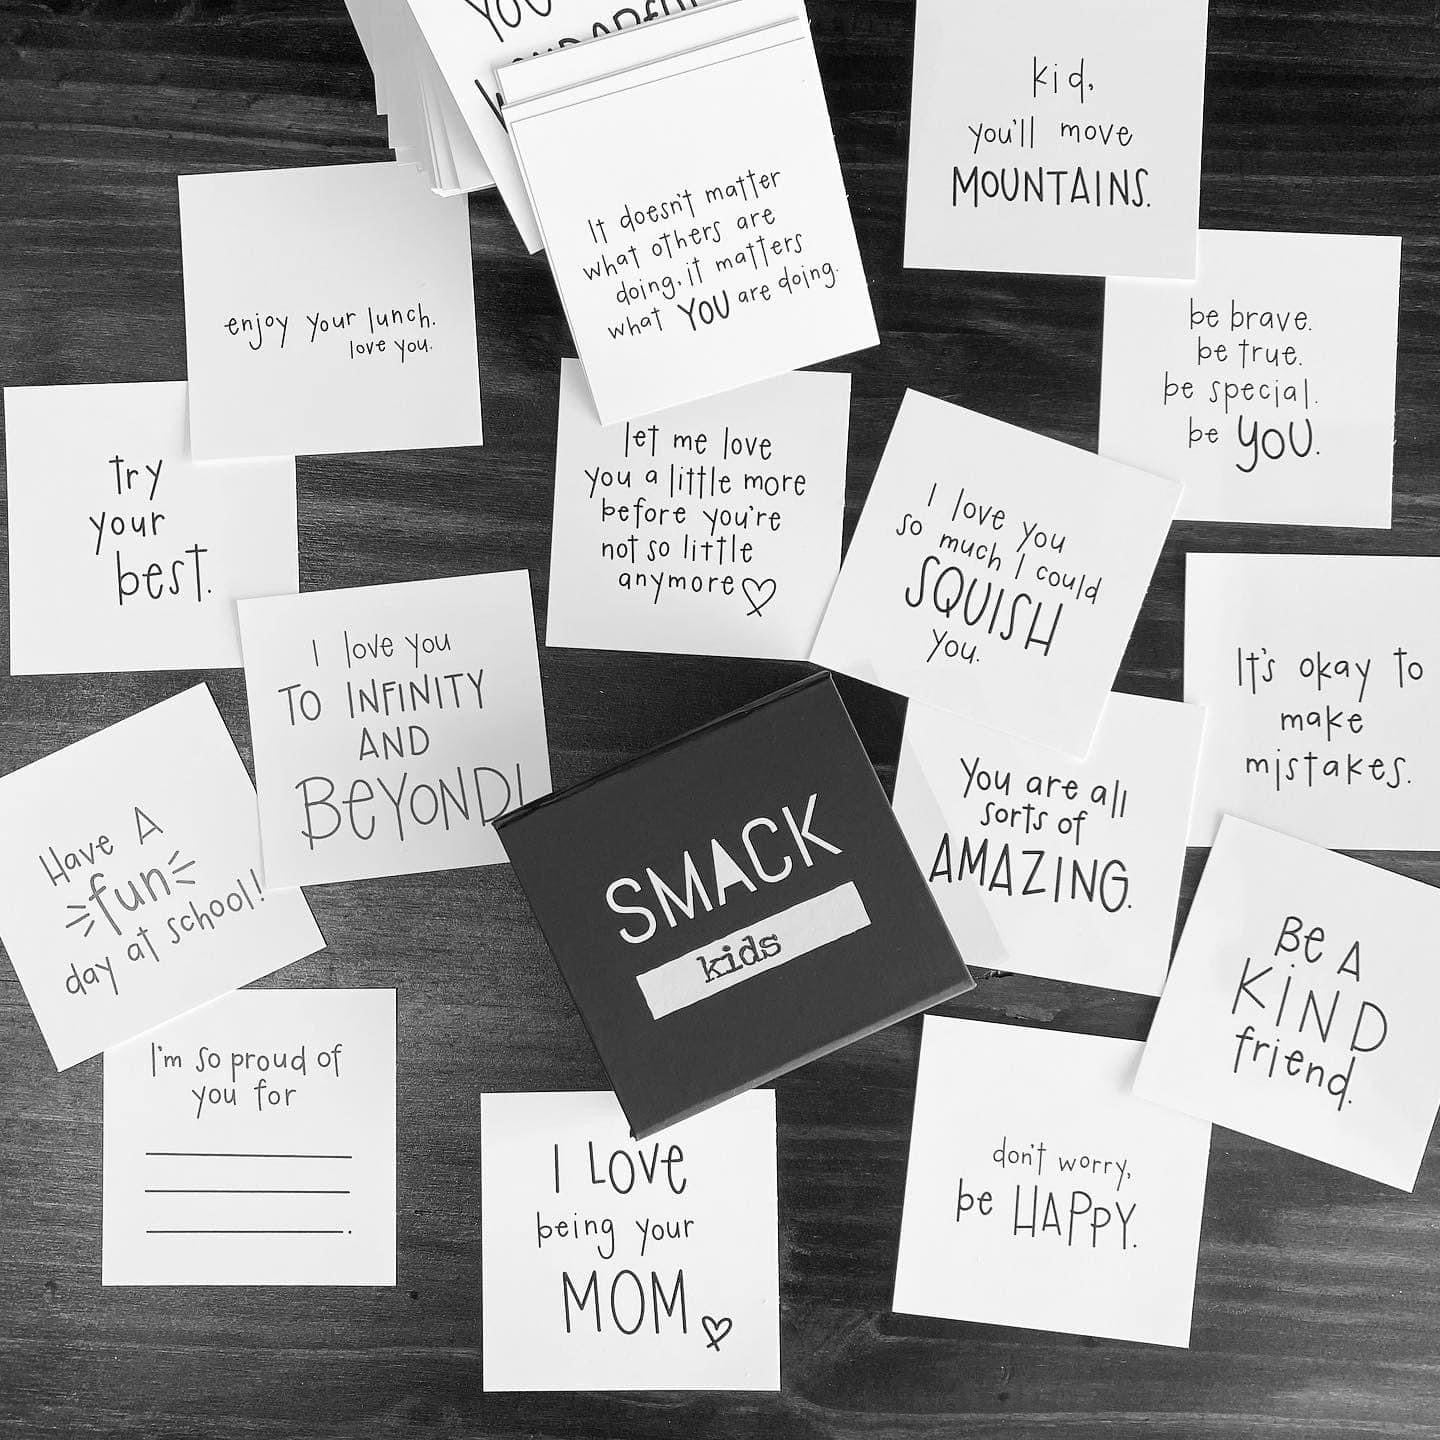 YOU
kid,
you'll move
MOUNTAINS.
It doesn't matter
what others are
doing, it matters
what YOU are doing.
enjoy your lunch.
love you.
be brave.
be true.
be special.
be YOU.
try
your
best.
let me love
you a little more
before you're
not so little
anymore
I love you
so much I could
SQUISH
you.
I love you
TO INFINITY
AND
BEYOND!
It's okay to
make
mistakes.
You are all
sorts of
AMAZING.
Have A
fun
day at school!
SMACK
kids
BE A
KIND
friend.
I'm so proud of
you for
I LOVE
being your
MOM
don't worry,
be HAPPY.